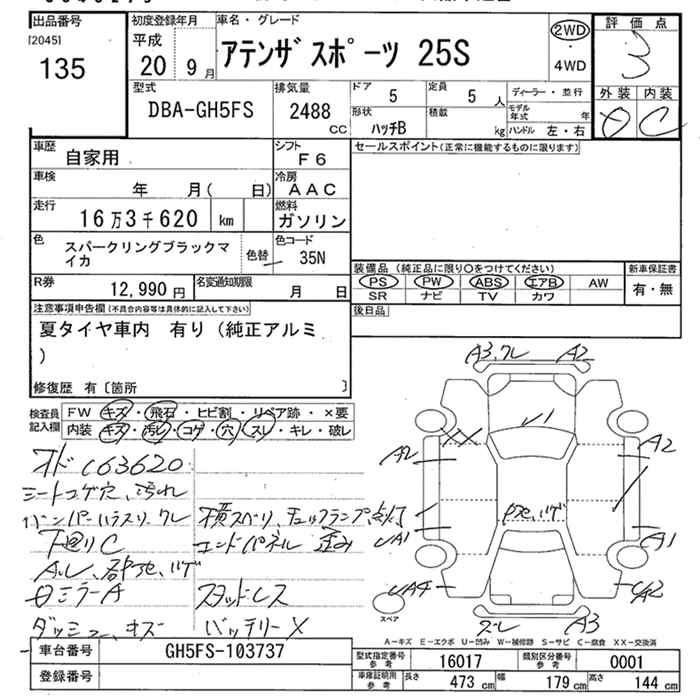 出品番号 初度登録年月 車名・グレード 評価点
[2045] 平成
135 20年 9月 アテンザスポーツ 25S 2WD・4WD 3
型式 排気量 ドア 5 定員 5人 ディーラー・並行 外装 内装
DBA-GH5FS 2488CC 形状 ハッチB 積載 kg モデル年式 年 ハンドル 左・右 C
車歴 自家用 シフト F6 セールスポイント(正常に機能するものに限ります)
車検 年 月( 日) 冷房 AAC
走行 16万3千620 km 燃料 ガソリン
色 スパークリングブラックマイカ 色替 色コード 35N
装備品(純正品に限り○をつけてください) 新車保証書
R券 12,990円 名変通知期限 月 日 PS PW ABS エアB AW 有・無
SR ナビ TV カワ
注意事項申告欄(不具合内容等は具体的に記入して下さい) 後日品
夏タイヤ車内 有り(純正アルミ
)
修復歴 有〔箇所 〕
検査員記入欄 FW キズ・飛石・ヒビ割・リペア跡・×要
内装 キズ・汚レ・コゲ・穴・スレ・キレ・破レ
A3.ワレ A2
√1
XX
A2 A2
オド 163620
シートコゲ穴、汚れ
横スベリ、チェックランプ点灯
下廻りC エンドパネル 歪み UA1 A1
ミラーA スタッドレス UA4 UA2
スペア
ダッシュ、キズ バッテリーX A3
A-キズ E-エクボ U-凹み W-補修跡 S-サビ C-腐食 XX-交換済
車台番号 GH5FS-103737 型式指定番号 参考 16017 類別区分番号 参考 0001
登録番号 車庫証明用 参考 長さ 473cm 幅 179cm 高さ 144cm